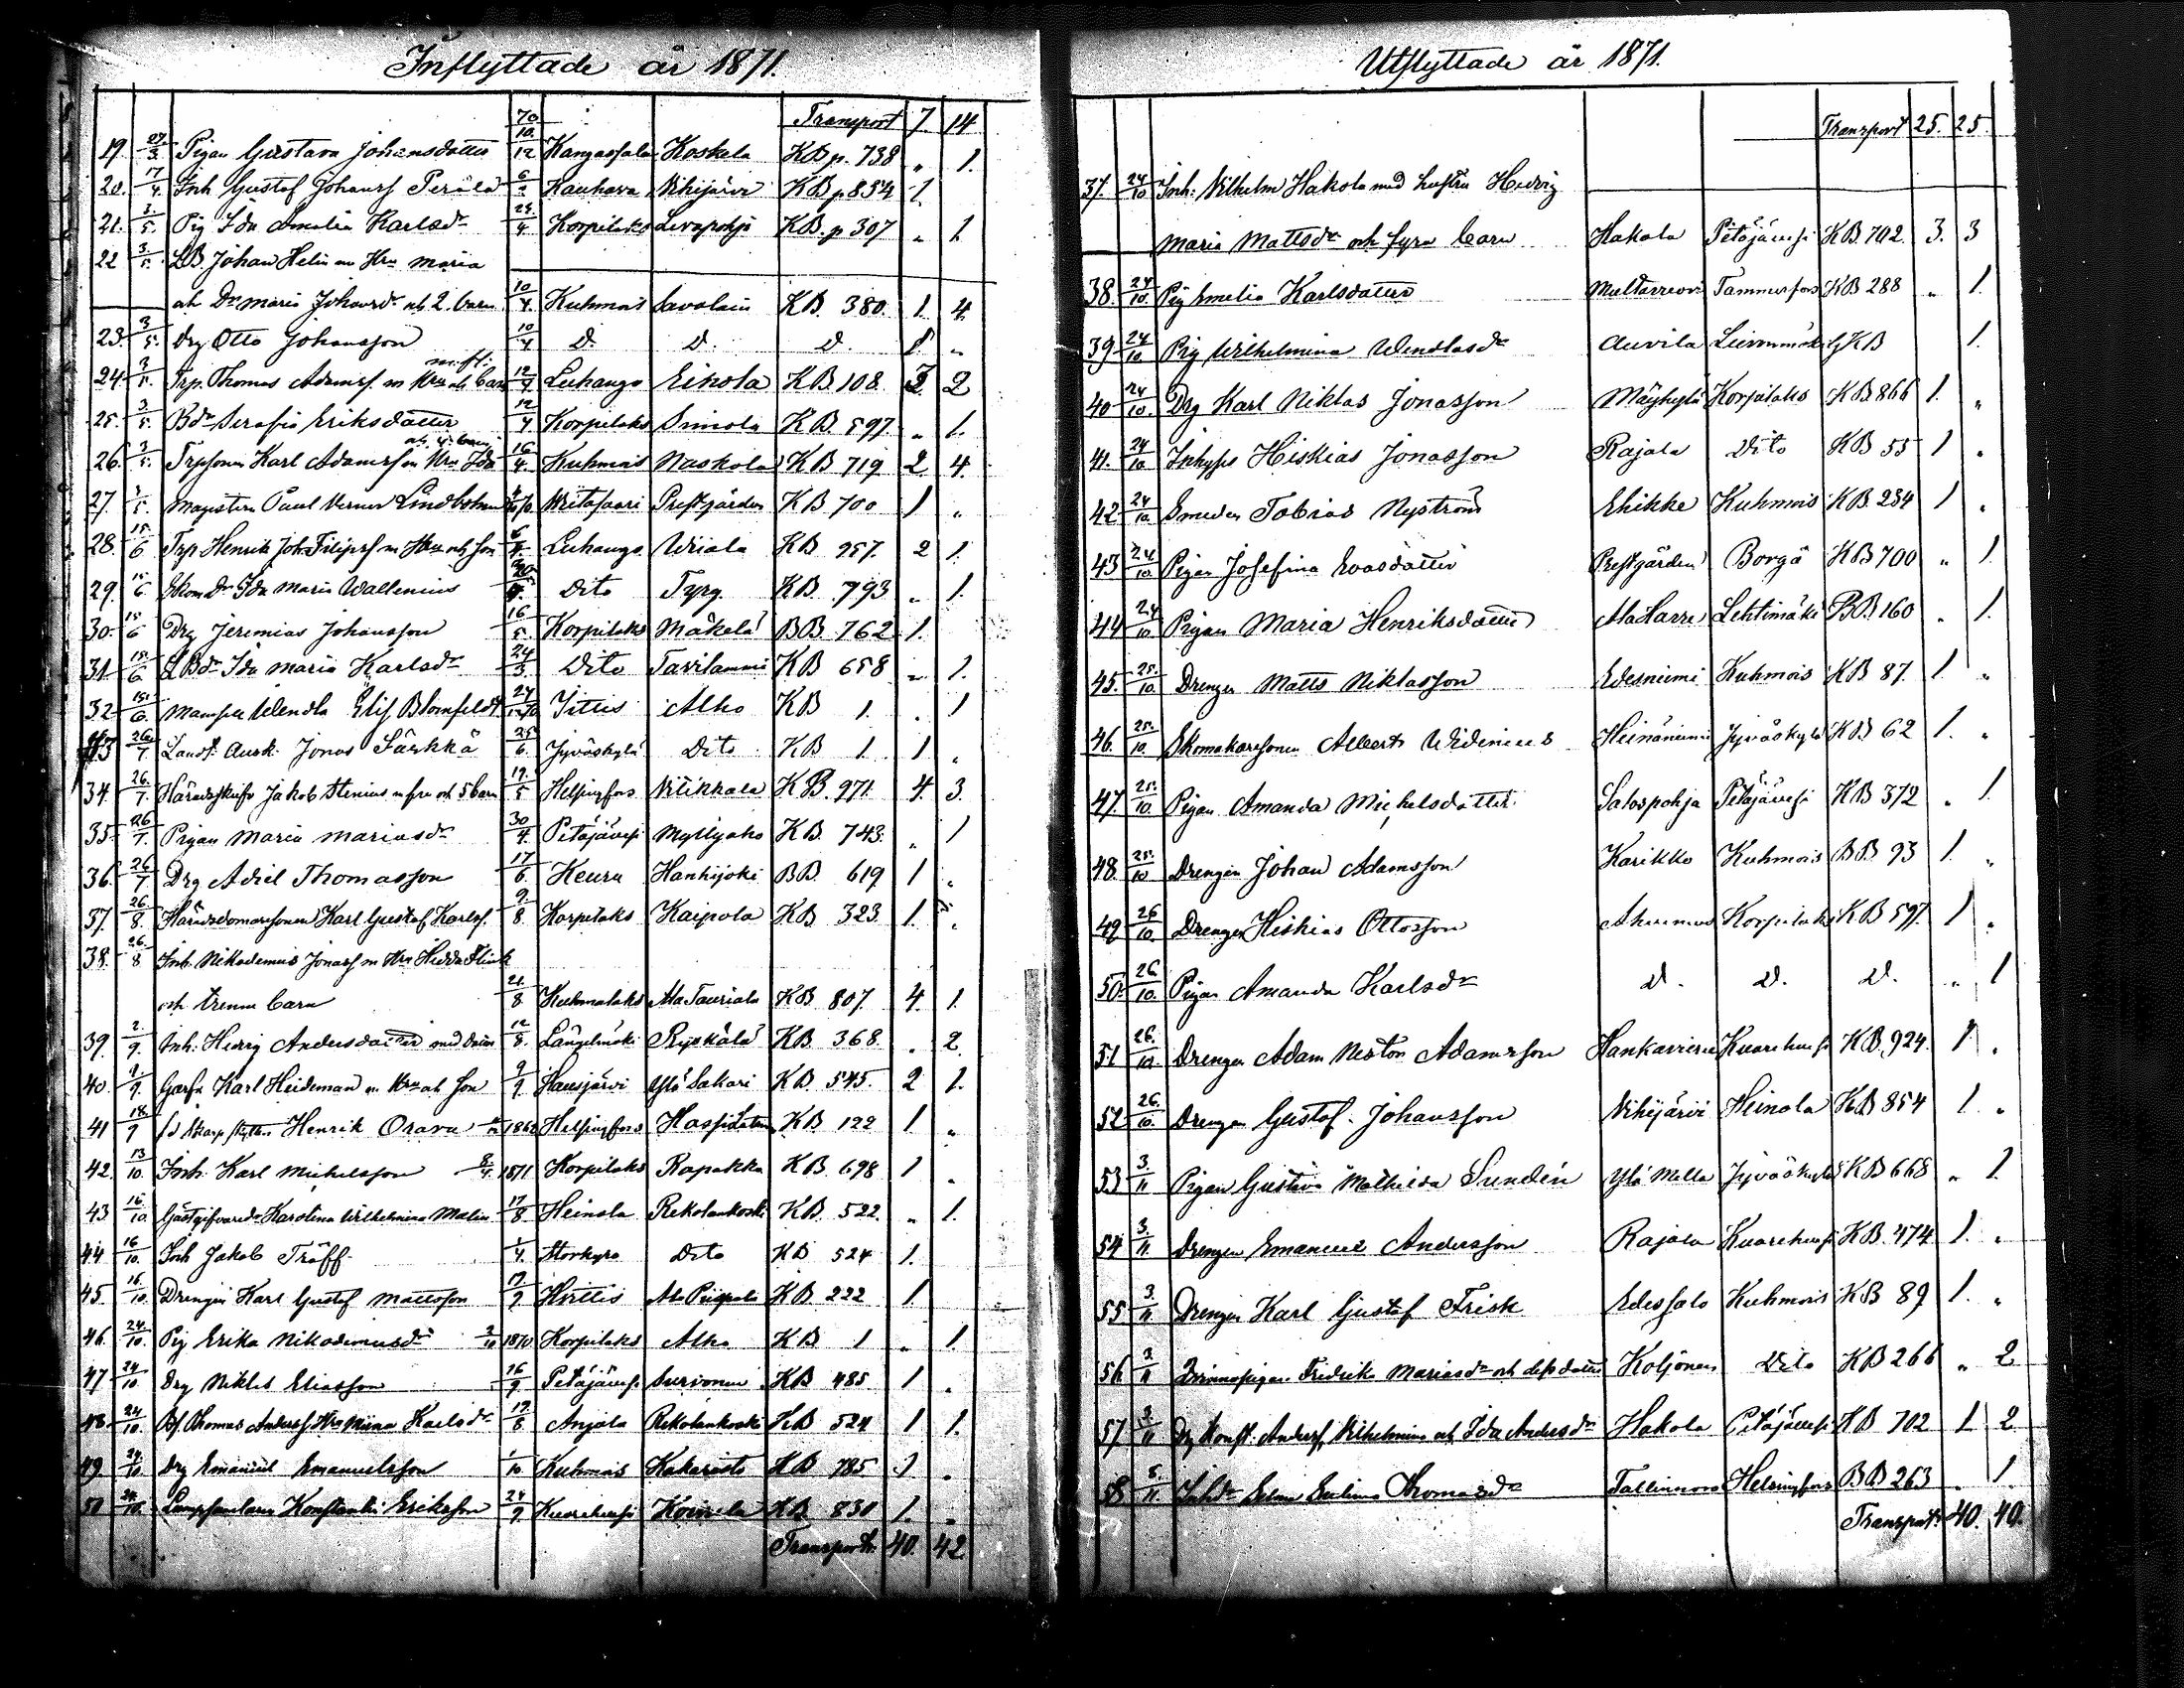 Inflyttade år 1871.
70 Transport 7. 14
19 27/3 Pigan Gustava Johansdotter 10/12 Kangasala Koskela KB p. 738 „ 1.
20. 17/4. Inh Gustaf Johansf Perälä 6/ Kauhava Vihijärvi KB p 854 1.
21. 3/5. Pig Ida Amalia Karlsdr 24/4. Korpilaks KB. p 307 „ 1.
22 3/5. LB Johan Helin m Hru Maria
och Dr Maria Johansdr och 2. barn 10/4. Kuhmois Savolain KB. 380. 1. 4.
23. 3/5. Drg Otto Johansson 10/4 D. D. D. 1. „
24. 3/5. Trp. Thomas Adamsf m Hru och barn 12/4 Luhango Eikola KB 108. 2 2
25. 3/5. Bdr Serafia Eriksdotter 12/4 Korpilaks Simola KB. 597. „ 1.
26. 3/5. Trpsonen Karl Adamsson Hru Ida och 4. barn 16/4. Kuhmois Naskola KB 719 2. 4.
27. 3/5. Magistern Paul Verner Lindbohm Prestgården KB 700 1 „
28. 15/6 Trp Henrik Joh. Filipsf m Hru och son 6/4. Luhango Wiiala KB 257. 2 1.
29. 15/6 Ida Maria Wallenius Dito Tyry. KB. 793 „ 1.
30. 15/6 Drg Jeremias Johansson 16/5. Korpilaks Mäkelä BB. 762. 1.
31 15/6. LBdr Ida Maria Karlsdr 24/3. Dito Tavilammi KB 658 „ 1.
32 15/6. Mamsell Wendla Elis. Blomfeldt Iittis Alho KB 1. . 1
33 26/7. Landt. Ausk. Jonas Särkkä 25/6. Jyväskylä Dito KB 1. 1 „
34. 26/7. Häradsskrifv Jakob Stenius m fru och 5 barn 19/5 Helsingfors Nikkala KB. 971. 4. 3.
35. 26/7. Pigan Maria Mariasdr 30/4. Petäjävesi Myllyaho KB. 743. „ 1
36. 26/7 Drg Adiel Thomasson 17/6. Keuru Hankijoki BB. 619 1 „
37. 26/8. Häradsdomaresonen Karl Gustaf Karlsf. 9/8. Korpilaks Kaipola KB. 323. 1. „
38. 26/8 Inh. Nikodemus Jonasf m Hru Hedda Flink
och trenne barn 21/8 Kuhmalaks Ala Tauriala KB 807. 4. 1.
39. 2/9. Inh. Hedvig Andersdotter med 12/8. Längelmäki KB. 368. . 2.
40. 9. Garfv Karl Heideman m Hru och son 9/9 Hausjärvi Ylö Sakari KB. 545. 2 1.
41 18/9 fd Skarpskytten Henrik Orava 1862 Helsingfors KB. 122 1 „
42. 13/10. Inh. Karl Michelsson 1871 Korpilaks Rapakka KB. 698 1 „
43 16/10 Gästgifvaredr Karolina Wilhelmina Malin 17/8. Heinola Rekolankoski KB. 522. „ 1.
44 16/10. Inh Jakob Träff 1/4. Storkyro Dito KB 524 1.
45. 16/10. Drengen Karl Gustaf Mattsson 17/9 Hirttis KB 222 1.
46. 24/10. Pig Erika Nikodemusdr 1870 Korpilaks Alho KB 1 „ 1.
47 24/10 Drg Niklas Eliasson 16/9 Petäjävesi Survonen KB 485 1 .
48. 24/10. Thomas Andersf Hru Miina Karlsdr 17/8 Anjala Rekolankoski KB 524 1 1.
49. 24/10. Drg Emanuel Emanuelsson 1/10 Kuhmois Kakaristo KB 785 1 „
50 24/10. Konstantin Eriksson 24/9 Kuorehvesi KB 830 1. „
Transport. 40. 42
Utflyttade år 1871.
Transport 25. 25.
37. 24/10 Inh: Vilhelm Hakola med hustru Hedvig
Maria Mattsdr och fyra barn Hakola Petäjävesi KB. 702. 3. 3
38. 24/10. Pig Emelia Karlsdotter Tammerfors KB 288 „ 1.
39 24/10 Pig Wilhelmina Wendlasdr Auvila KB 1.
40 24/10. Drg Karl Niklas Jonasson Mäyhylä Korpilaks KB 866 1. „
41. 24/10. Inhyses Hiskias Jonasson Rajala Dito KB 55 1 „
42 24/10. Smeden Tobias Nyström Ehikke Kuhmois KB. 234 1 „
43 24/10. Pigan Josefina Evasdotter Prestgården Borgå KB 700 „ 1.
44 24/10 Pigan Maria Henriksdotter Lehtimäki BB. 160 „ 1.
45. 25./10. Drengen Matts Niklasson Edesniemi Kuhmois KB 87. 1. „
46. 25./10. Skomakaresonen Albert Widenius Heinäniemi Jyväskylä KB 62 1. „
47. 25./10. Pigan Amanda Michelsdotter Salospohja Petäjävesi KB 372 „ 1.
48. 25./10 Drengen Johan Adamsson Karikko Kuhmois BB. 93 1. „
49 26/10. Drengen Hiskias Ottosson Korpilaks KB 597. 1 „
50. 26./10. Pigan Amanda Karlsdr D. D. D. „ 1
51 26./10. Drengen Adam Nestor Adamsson Hankavieru Kuorehvesi KB. 924. 1 „
52. 26./10. Drengen Gustaf Johansson Vihijärvi Heinola KB 854 1. „
53 3./11. Pigan Gustava Mathilda Sundén Ylä Mella Jyväskylä KB 668 „ 1.
54 3./11. Drengen Emanuel Andersson Rajala Kuorehvesi KB. 474 1. „
55 3./11. Drengen Karl Gustaf Frisk Edessalo Kuhmois KB 89 1. „
56. 3./11 Fredrika Mariasdr och dess dotter Koljonen Dito KB 266 „ 2
57 3/11 Drg Konst. Andersf, Vilhelmina och Ida Andersdr Hakola Petäjävesi KB 702 1 2
58 5./11. Thomasdr Helsingfors BB 263 . 1
Transport. 40. 40.